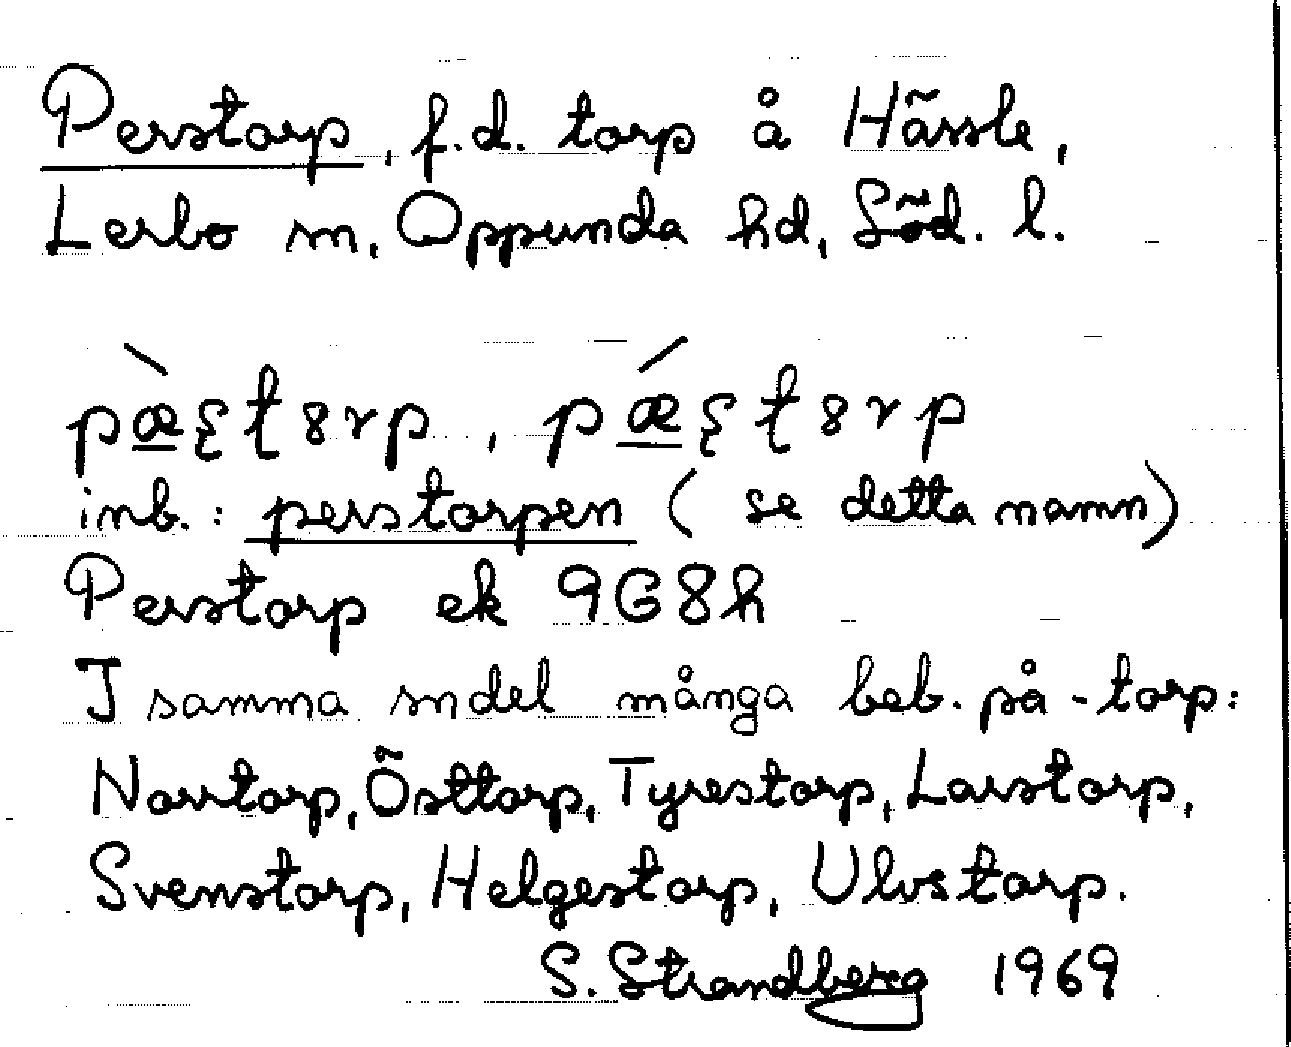 Perstorp, f.d. torp å Hässle,
Lerbo sn, Oppunda hd, Söd. l.
pæ̀ʂʈ8rp, pǽʂʈ8rp
inb.: perstorpen (se detta namn)
Perstorp ek 9G8h
I samma sndel många beb. på -torp:
Norrtorp, Östtorp, Tyrestorp, Larstorp,
Svenstorp, Helgestorp, Ulvstorp.
S. Strandberg 1969